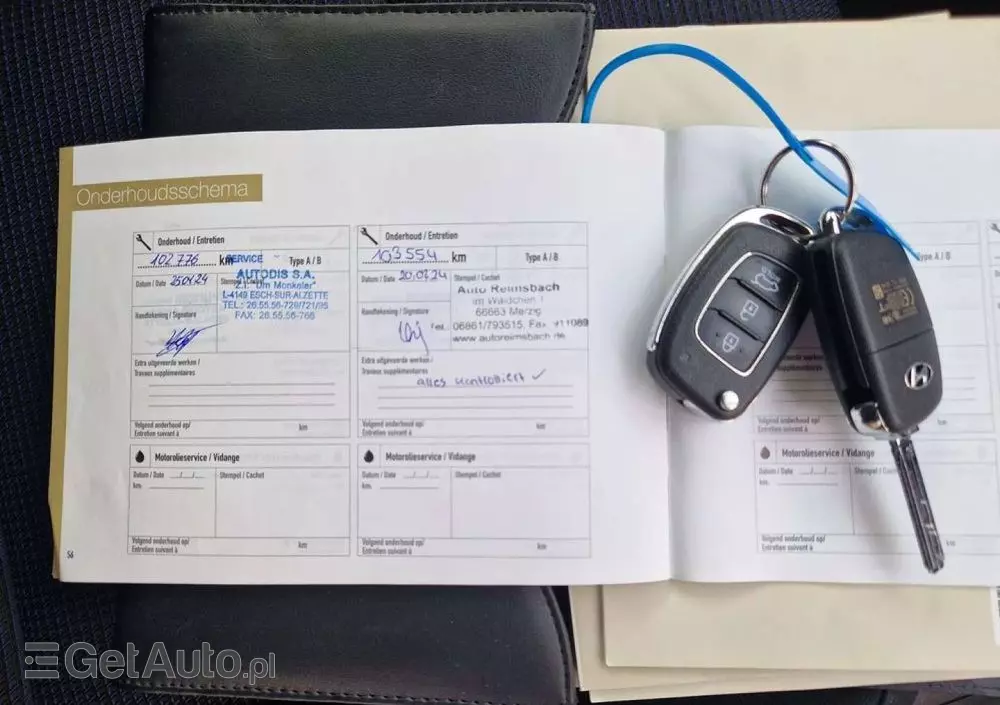 Onderhoudsschema
Onderhoud / Entretien
102 776 km
Type A / B
Datum / Date 25 01 24
SERVICE
AUTODIS S.A.
Z.I. "Um Monkeler"
L-4149 ESCH-SUR-ALZETTE
TEL.: 26.55.56-720/721/95
FAX: 26.55.56-766
Handtekening / Signature
Extra uitgevoerde werken /
Travaux supplémentaires
Volgend onderhoud op/
Entretien suivant à
km
Onderhoud / Entretien
103 554 km
Type A / B
Datum / Date
Stempel / Cachet
Auto Reimsbach
im Wäldchen 1
66663 Merzig
Tel.: 06861/793515, Fax 911089
www.autoreimsbach.de
Handtekening / Signature
Extra uitgevoerde werken /
Travaux supplémentaires
alles kontrolliert ✓
Volgend onderhoud op/
Entretien suivant à
km
Motorolieservice / Vidange
Datum / Date
Stempel / Cachet
km.
Volgend onderhoud op/
Entretien suivant à
km
Motorolieservice / Vidange
Datum / Date
Stempel / Cachet
km.
Volgend onderhoud op/
Entretien suivant à
km
56
Type A / B
Motorolieservice / Vidange
Datum / Date
km.
Volgend onderhoud op/
Entretien suivant à
km
HOLD
GetAuto.pl